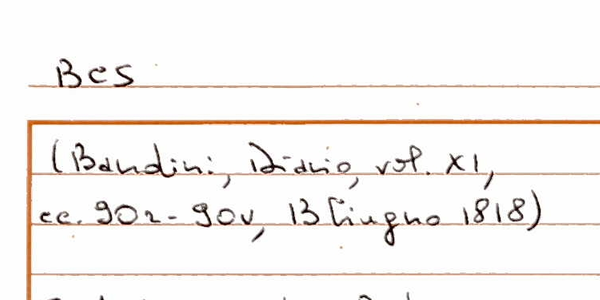 Bes
(Bandini, Diario, vol. XI,
cc. 90r-90v, 13 Giugno 1818)